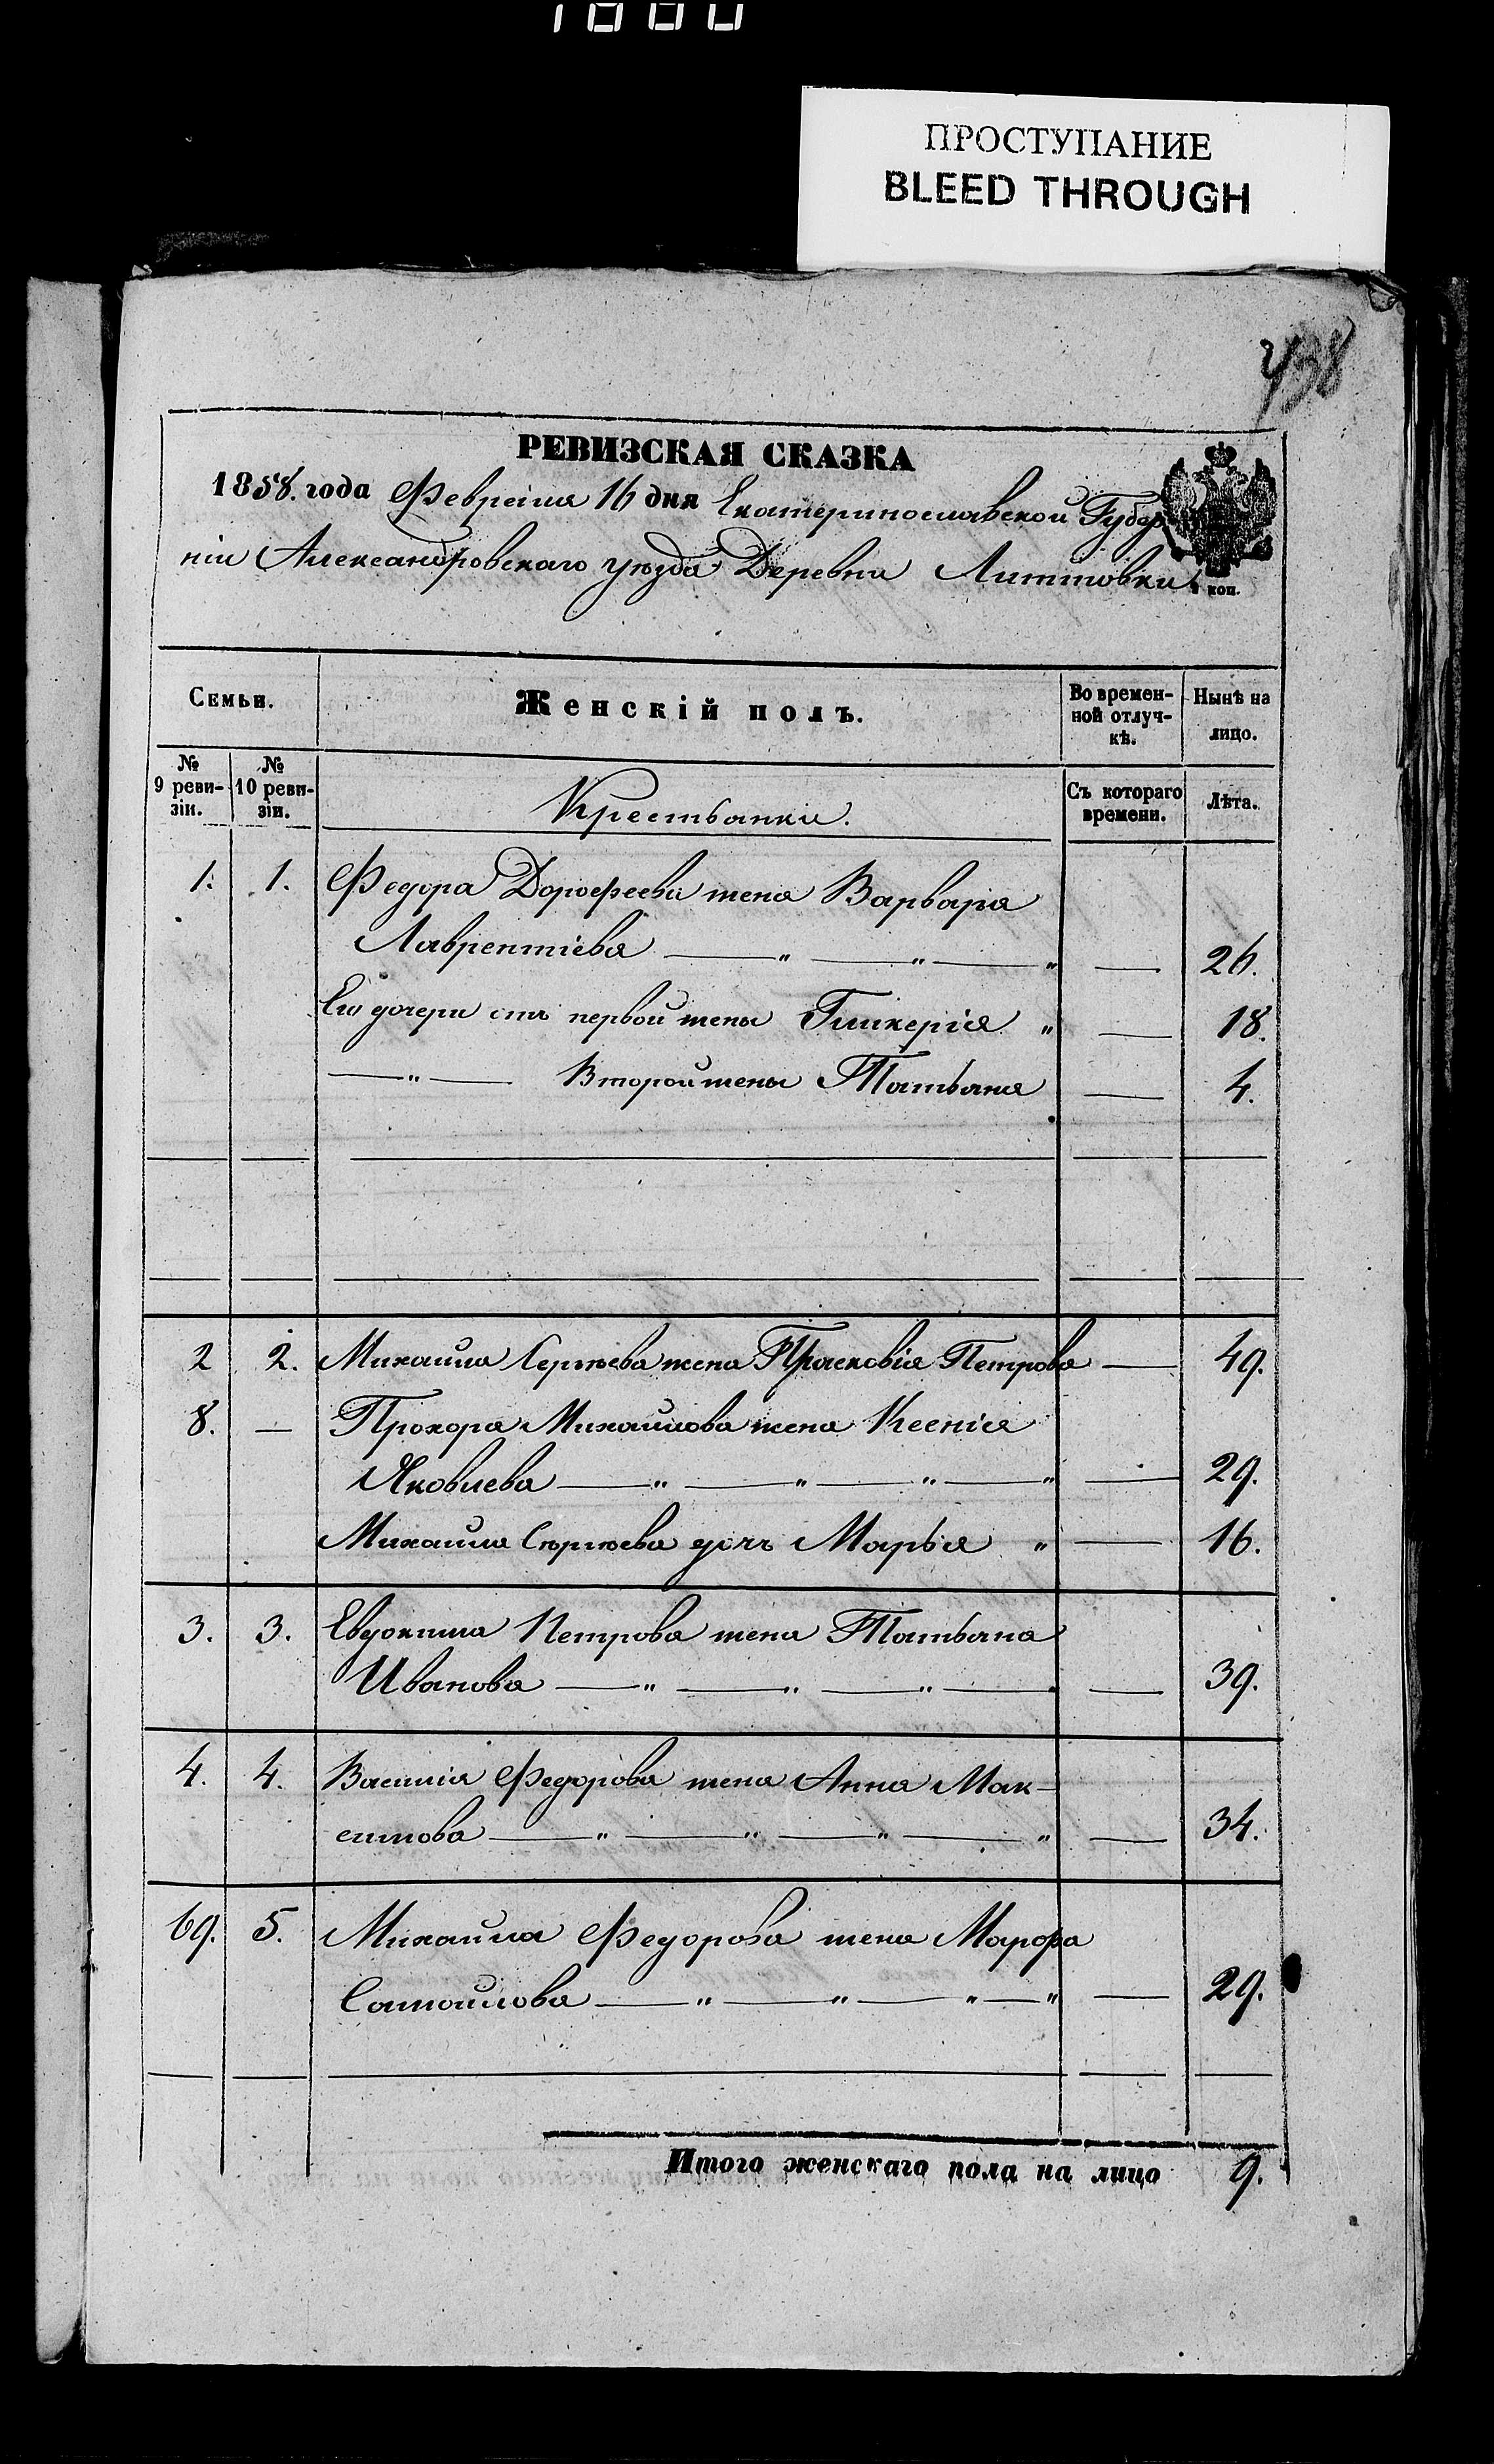 1880
ПРОСТУПАНИЕ
BLEED THROUGH
438
РЕВИЗСКАЯ СКАЗКА
1858. года Февраля 16 дня Екатеринославской Губер
ніи Александровскаго уѣзда Деревни
коп.
Семьи.
Женскій полъ.
Во времен-
ной отлуч-
кѣ.
Нынѣ на
лицо.
№
9 реви-
зіи.
№
10 реви-
зіи.
Крестьянки.
Съ котораго
времени.
Лѣта.
1. 1. Федора Дорофеева жена Варвара
Лаврентіева — " — " — " — 26.
Его дочери отъ первой жены Гликерія " — 18.
— " — Второй жены Татьяна — 4.
2 2. Михаила Сергѣева жена Прасковія Петрова — 49.
8. — Прохора Михайлова жена Ксенія
Яковлева — " — " — " — " — 29.
Михаила Сергѣева дочь Марья " — 16.
3. 3. Евдокима Петрова жена Татьяна
Иванова — " — " — " — — 39.
4. 4. Василія Федорова жена Анна Мак-
симова — " — " — " — " — 34.
69. 5. Михайла Федорова жена Марфа
Самойлова — " — " — " — " — 29.
Итого женскаго пола на лицо 9.